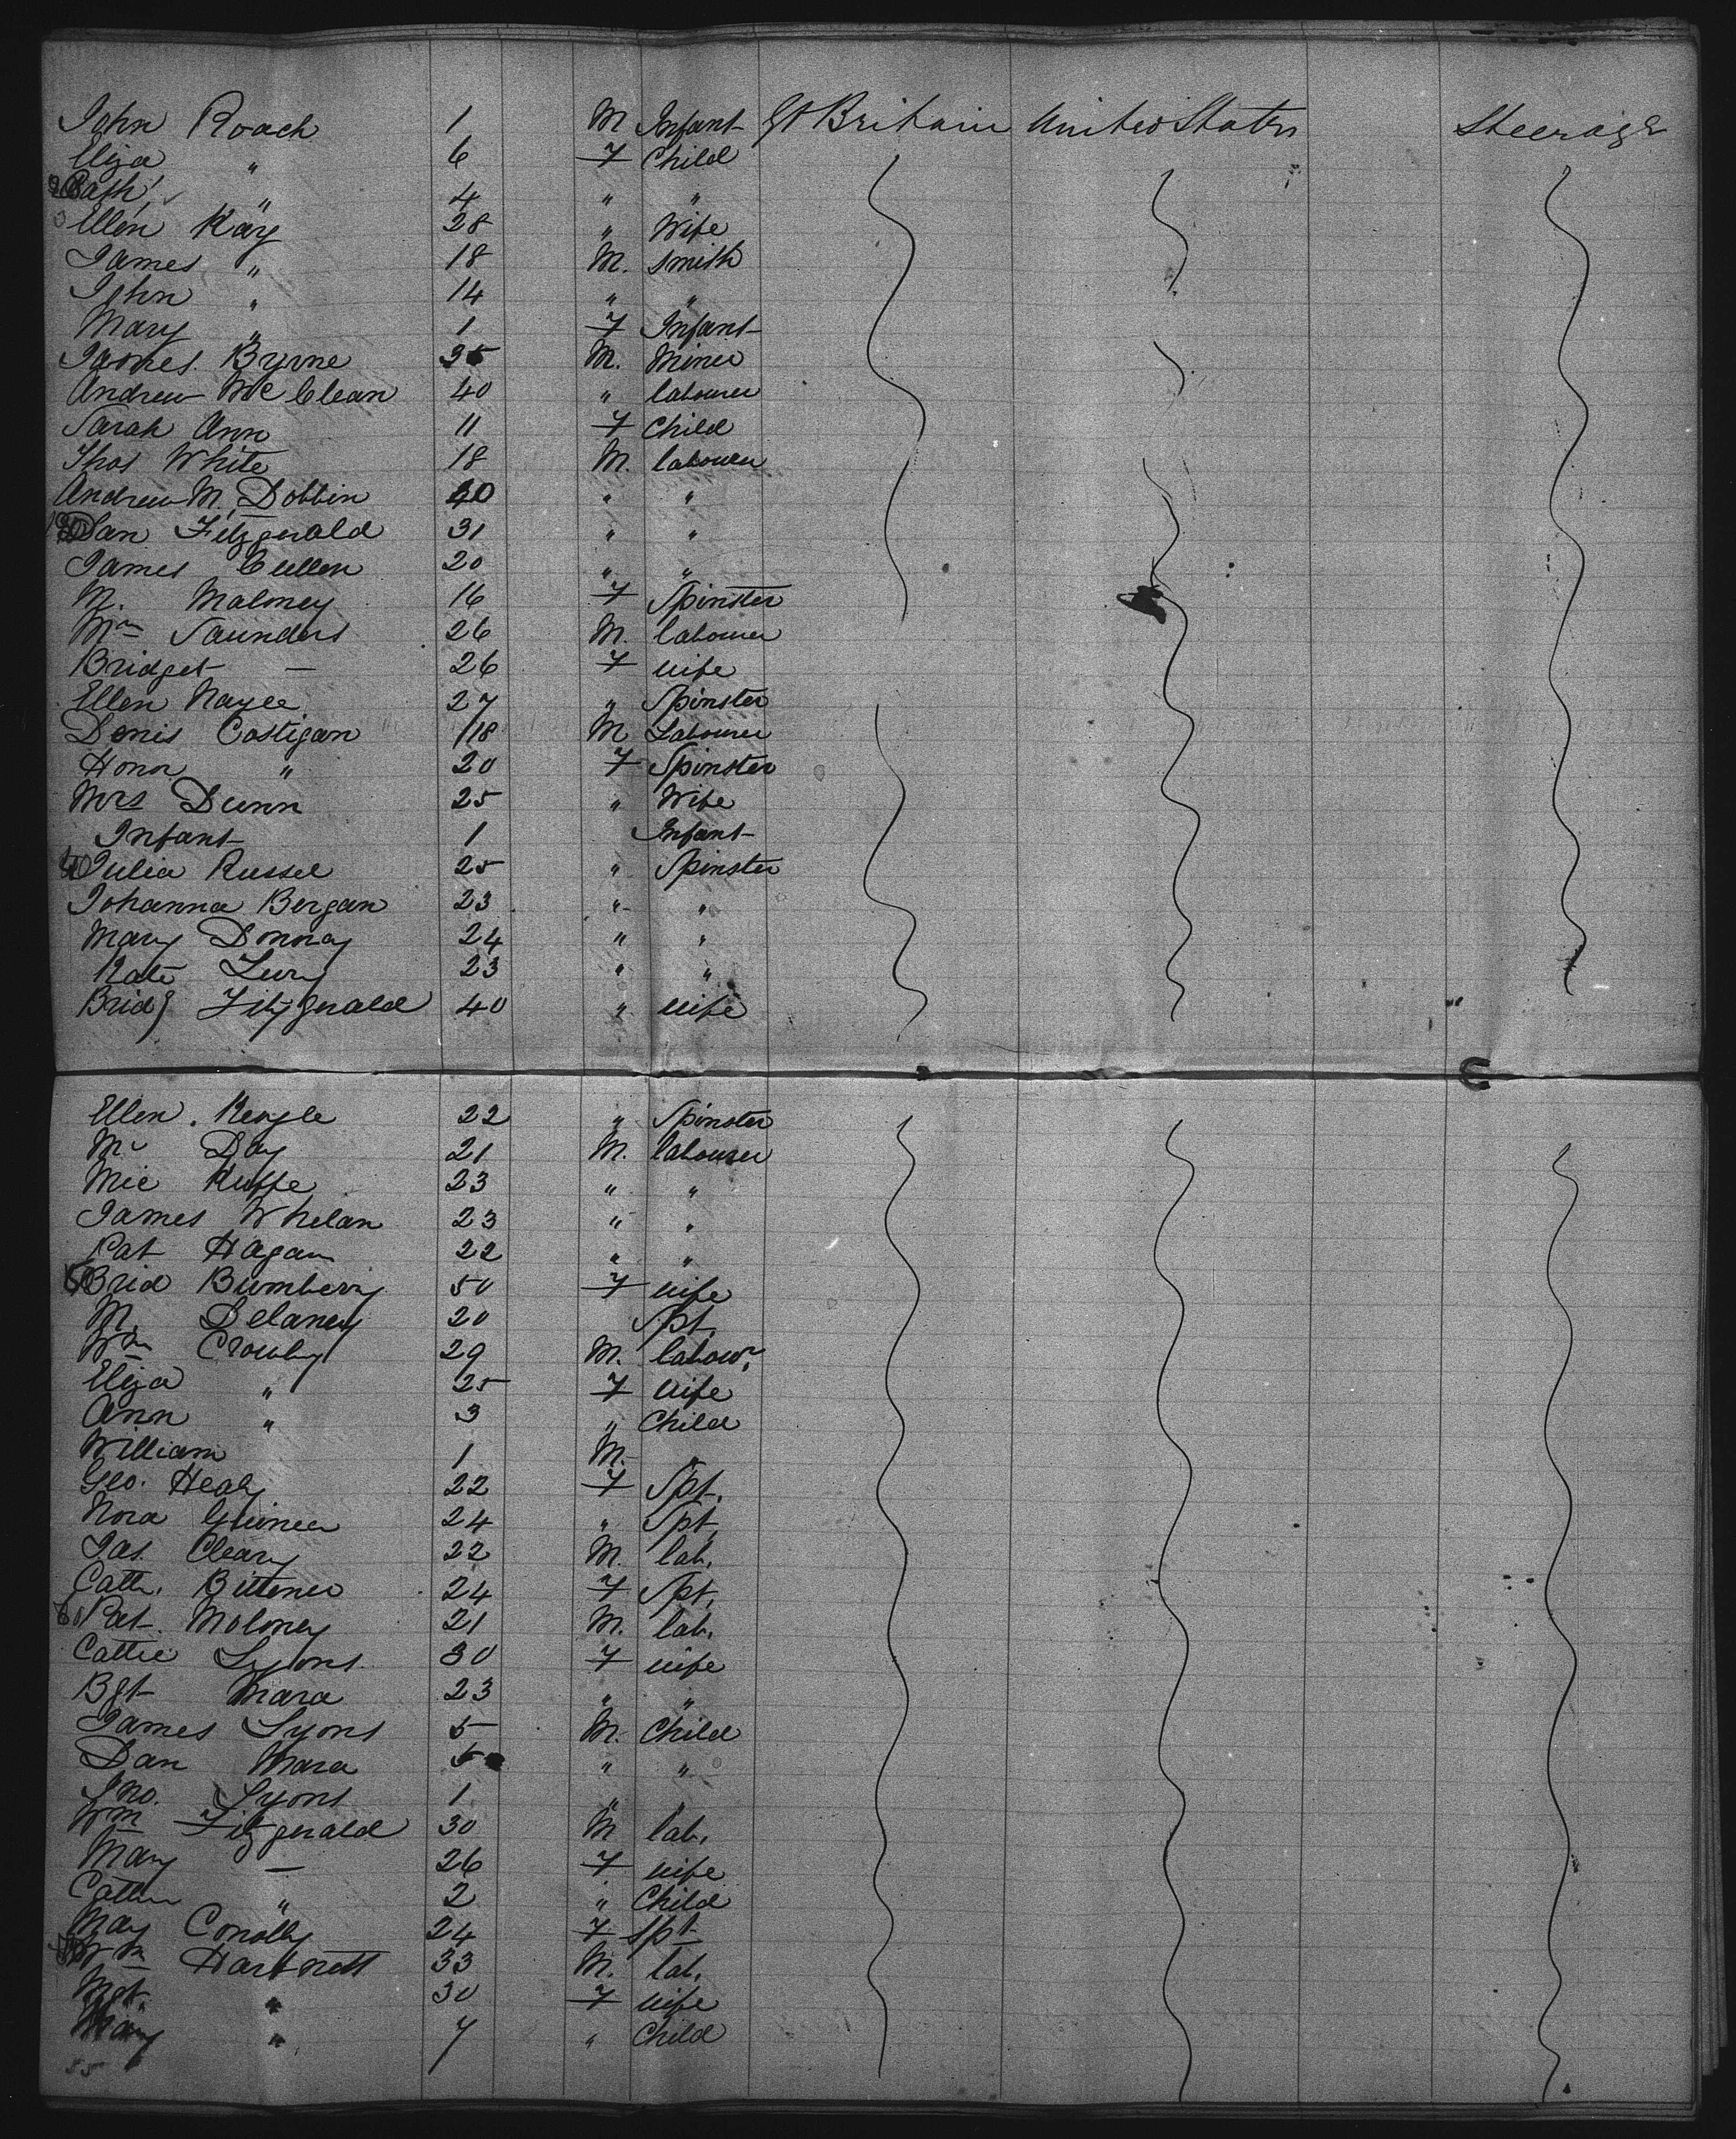 John Roach 1 M Infant Gt Britain United States Steerage
Eliza " 6 F Child
Cath " 4 " "
Ellen Kay 28 " Wife
James " 18 M. Smith
John " 14 " "
Mary " 1 F Infant
James Byrne 35 M. Miner
Andrew McClean 40 " labourer
Sarah Ann 11 F Child
Thos White 18 M. labourer
Andrew M. Dobbin 40 " "
Dan Fitzgerald 31 " "
James Cullen 20 " "
M. Maloney 16 F Spinster
Wm Saunders 26 M. labourer
Bridget — 26 F wife
Ellen 27 " Spinster
Denis Costigan 18 M Labourer
Honor " 20 F Spinster
Mrs Dunn 25 " Wife
Infant 1 Infant
Julia Russel 25 " Spinster
Johanna Bergan 23 " "
Mary 24 " "
Kate 23 " "
Bridg Fitzgerald 40 " wife
Ellen 22 " Spinster
M. Day 21 M. labourer
Mic 23 " "
James Whelan 23 " "
Pat Hagan 22 " "
Brid Bumberry 50 F wife
M. Delaney 20 Spt
Wm Crowley 29 M. labour.
Eliza " 25 F wife
Ann " 3 " Child
William 1 M. "
Geo. Healy 22 F Spt.
Nora 24 " Spt
Jas. Cleary 22 M. lab.
Cath. 24 F Spt.
Pat. Moloney 21 M. lab.
Cattie Lyons 30 F wife
Bgt Mara 23 " "
James Lyons 5 M. Child
Dan Mara 5 " "
Jno. Lyons 1 " "
Wm Fitzgerald 30 M lab.
Mary — 26 F wife
Cath " 2 " Child
May Conolly 24 F Spt
Wm Hartnett 33 M. lab.
Mgt. " 30 F wife
Mary " 7 " Child
55